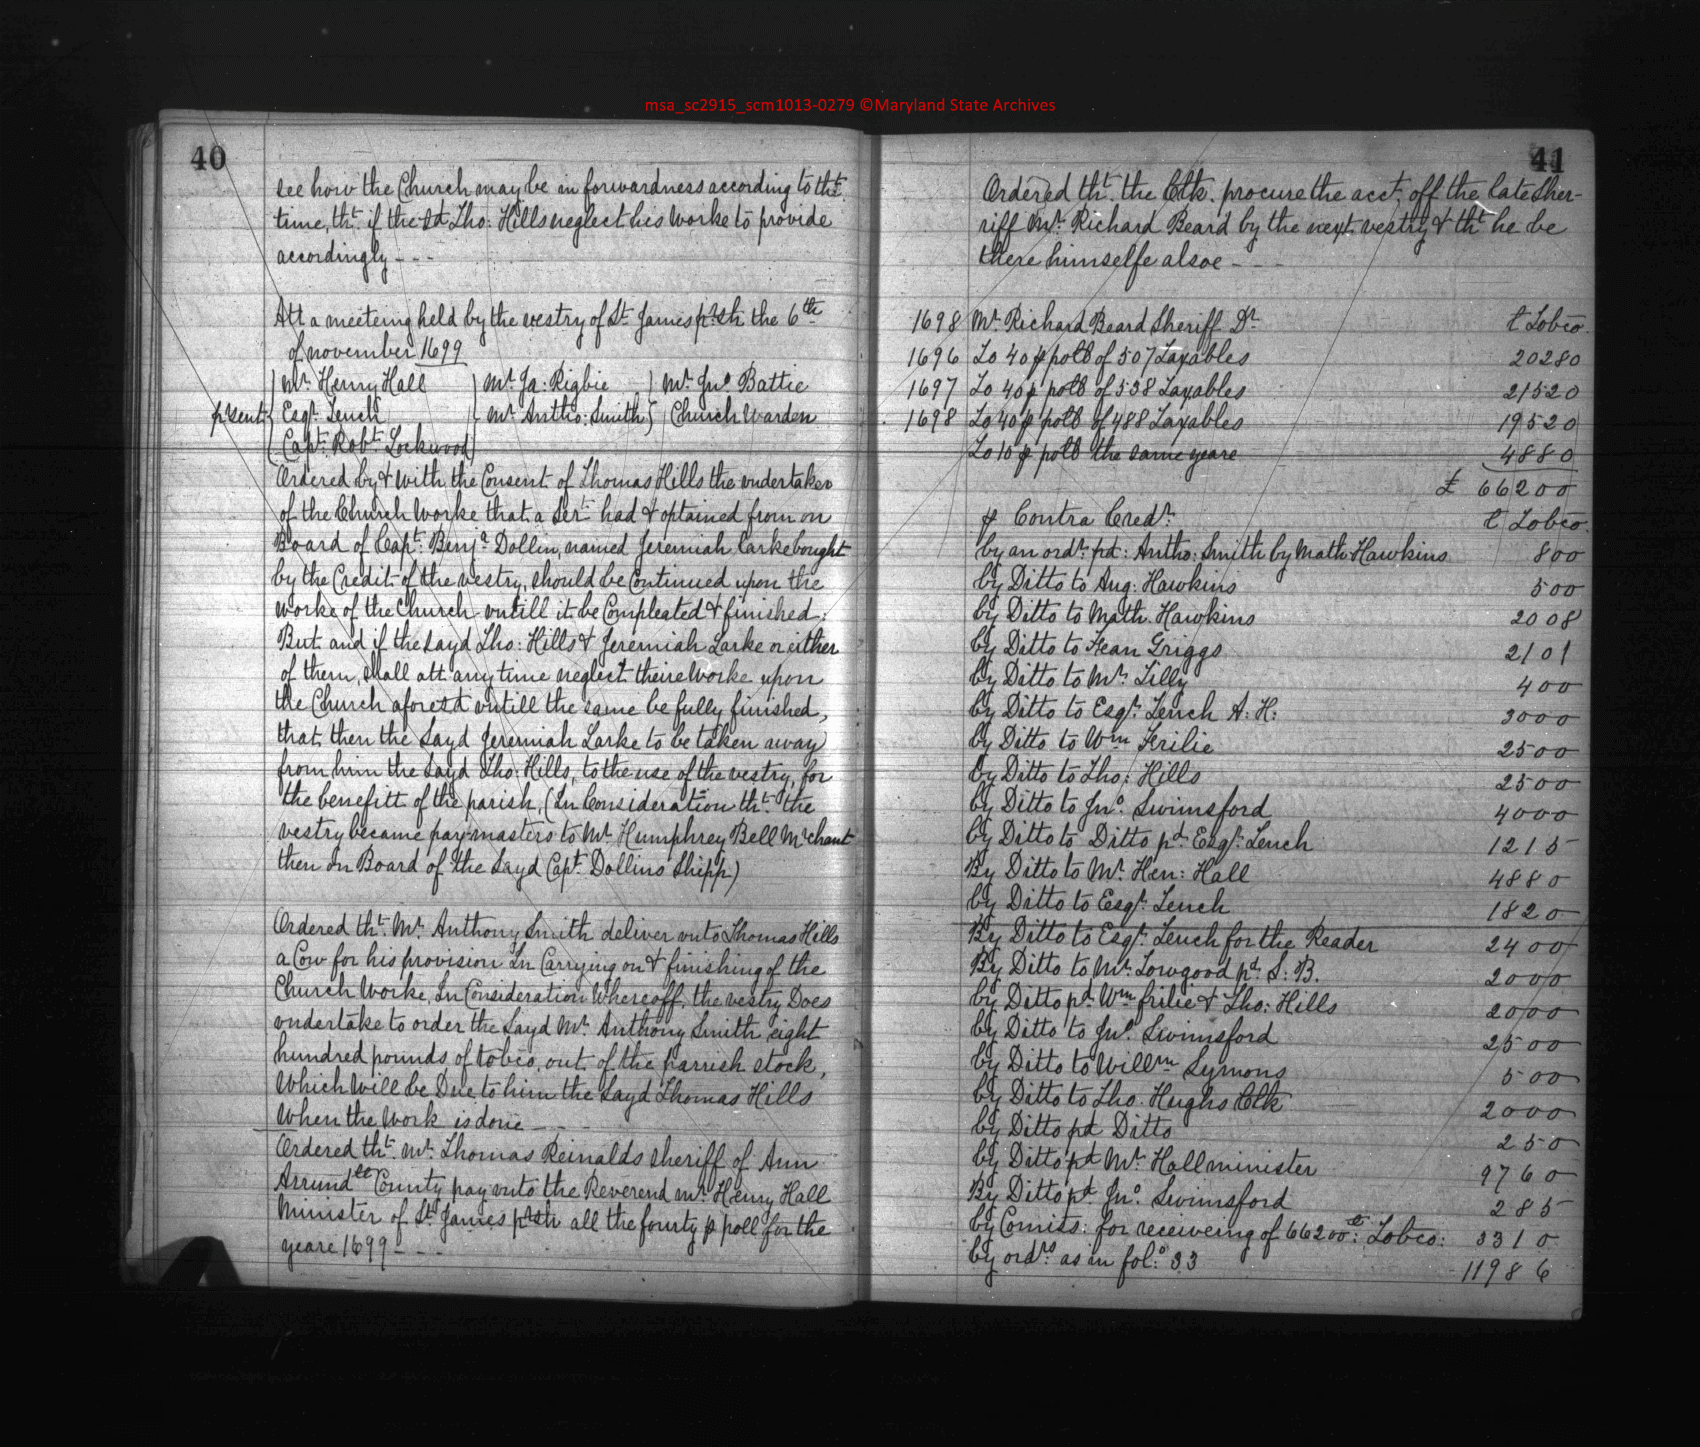 msa_sc2915_scm1013-0279 ©Maryland State Archives
40
see how the Church may be in forwardness according to tht
time, tht if the sd Tho: Hills neglect his Worke to provide
accordingly - - -
Att a meeteing held by the vestry of St James prsh the 6th
of november 1699
Mr Henry Hall Mr Ja: Rigbie Mr Jno Battie
prsent Esqr Lench Mr Antho: Smith Church Warden
Capt Robt Lockwood
Ordered by & with the Consent of Thomas Hills the undertaker
of the Church Worke that a Sert had & optained from on
Board of Capt Benja Dollin, named Jeremiah Larke bought
by the Credit of the vestry, should be Continued upon the
worke of the Church untill it be Compleated & finished:
But and if the Sayd Tho: Hills & Jeremiah Larke or either
of them, shall att any time neglect theire Worke upon
the Church aforesd untill the same be fully finished,
that then the Sayd Jeremiah Larke to be taken away
from him the Sayd Tho: Hills, to the use of the vestry, for
the benefitt of the parish, (In Consideration tht the
vestry became pay-masters to Mr Humphrey Bell Mrchant
then on Board of the Sayd Capt Dollins Shipp)
Ordered tht Mr Anthony Smith deliver unto Thomas Hills
a Cow for his provision In Carrying on & finishing of the
Church Worke, In Consideration Whereoff, the vestry Does
undertake to order the Sayd Mr Anthony Smith eight
hundred pounds of tobco, out of the parrish stock,
Which Will be Due to him the Sayd Thomas Hills
When the Work is done - - -
Ordered tht Mr Thomas Reinalds sheriff of Ann
Arrundll County pay unto the Reverend Mr Henry Hall
Minister of St James prsh all the fourty p poll for the
yeare 1699 - - -
41
Ordered tht the Clk. procure the acct off the late Sher-
riff Mr Richard Beard by the next vestry & tht he be
there himselfe alsoe - - -
1698 Mr Richard Beard Sheriff Dr l Tobco.
1696 To 40 p poll of 507 Taxables 20280
1697 To 40 p poll of 538 Taxables 21520
1698 To 40 p poll of 488 Taxables 19520
To 10 p poll the same yeare 4880
£ 66200
p Contra Credr l Tobco
by an ordr pd: Antho: Smith by Math Hawkins 800
by Ditto to Aug: Hawkins 500
by Ditto to Math. Hawkins 2008
by Ditto to Griggs 2101
by Ditto to Mr Tilly 400
by Ditto to Esqr Lench A: H: 3000
by Ditto to Wm Frilie 2500
by Ditto to Tho: Hills 2500
by Ditto to Jno Swinsford 4000
by Ditto to Ditto pd Esqr Lench 1215
By Ditto to Mr Hen: Hall 4880
by Ditto to Esqr Lench 1820
By Ditto to Esqr Lench for the Reader 2400
By Ditto to Mr Lowgood pd S: B. 2000
by Ditto pd Wm frilie & Tho: Hills 2000
by Ditto to Jno Swinsford 2500
by Ditto to Willm Symons 500
by Ditto to Tho. Hughs Clk 2000
by Ditto pd Ditto 250
by Ditto pd Mr Hall minister 9760
By Ditto pd Jno Swinsford 285
by Comiss: for receiveing of 66200 lb: Tobco: 3310
by ordrs as in folo: 33 11986